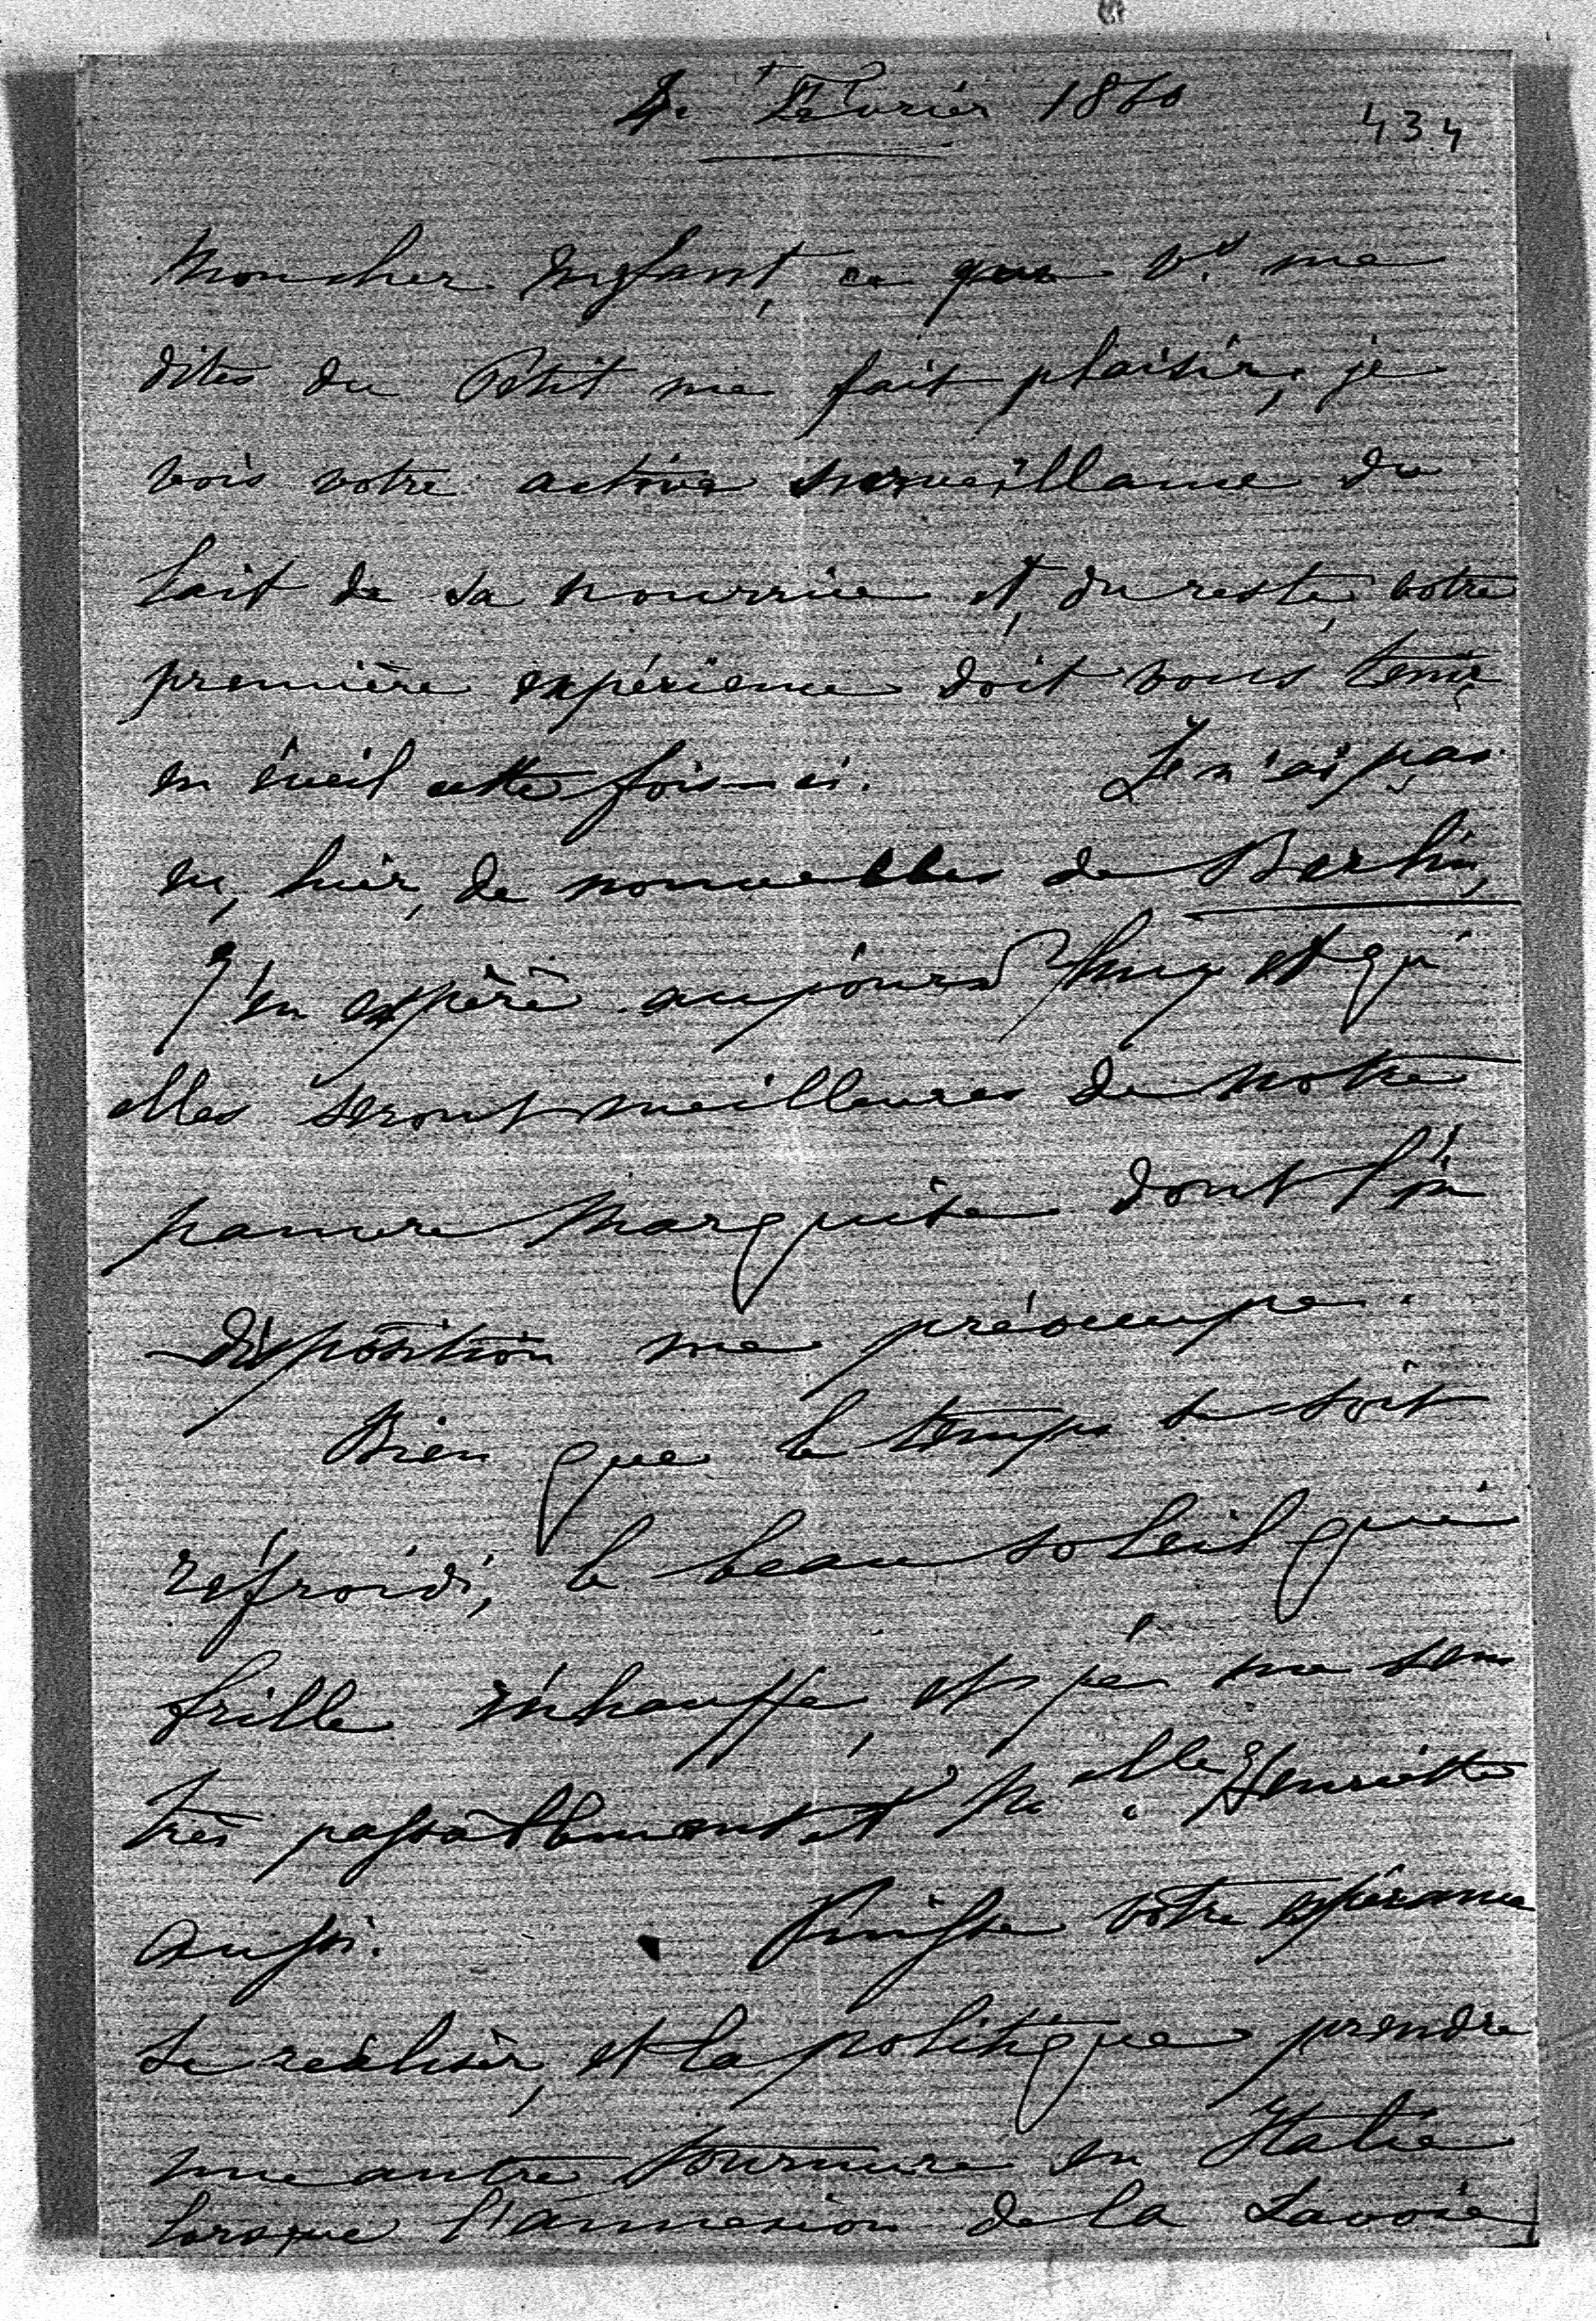 4. Février 1860
434
Mon cher Enfant, ce que v.s me
dites du Petit me fait plaisir; je
vois votre active surveillance du
lait de sa nourrice et, du reste, votre
première expérience doit vous tenir
en éveil cette fois-ci. Je n'ai pas
eu, hier, de nouvelles de Berlin,
J'en espère aujourd'huy et qu'
elles seront meilleures de notre
pauvre Marquise dont l'in
disposition me préoccupe.
Bien que le temps se soit
refroidi, le beau soleil qui
brille réchauffe, et je me sens
très passablement et M.elle Henriette
aussi. Puisse votre espérance
se réaliser, et la politique prendre
une autre tournure en Italie
lorsque l'annexion de la Savoie